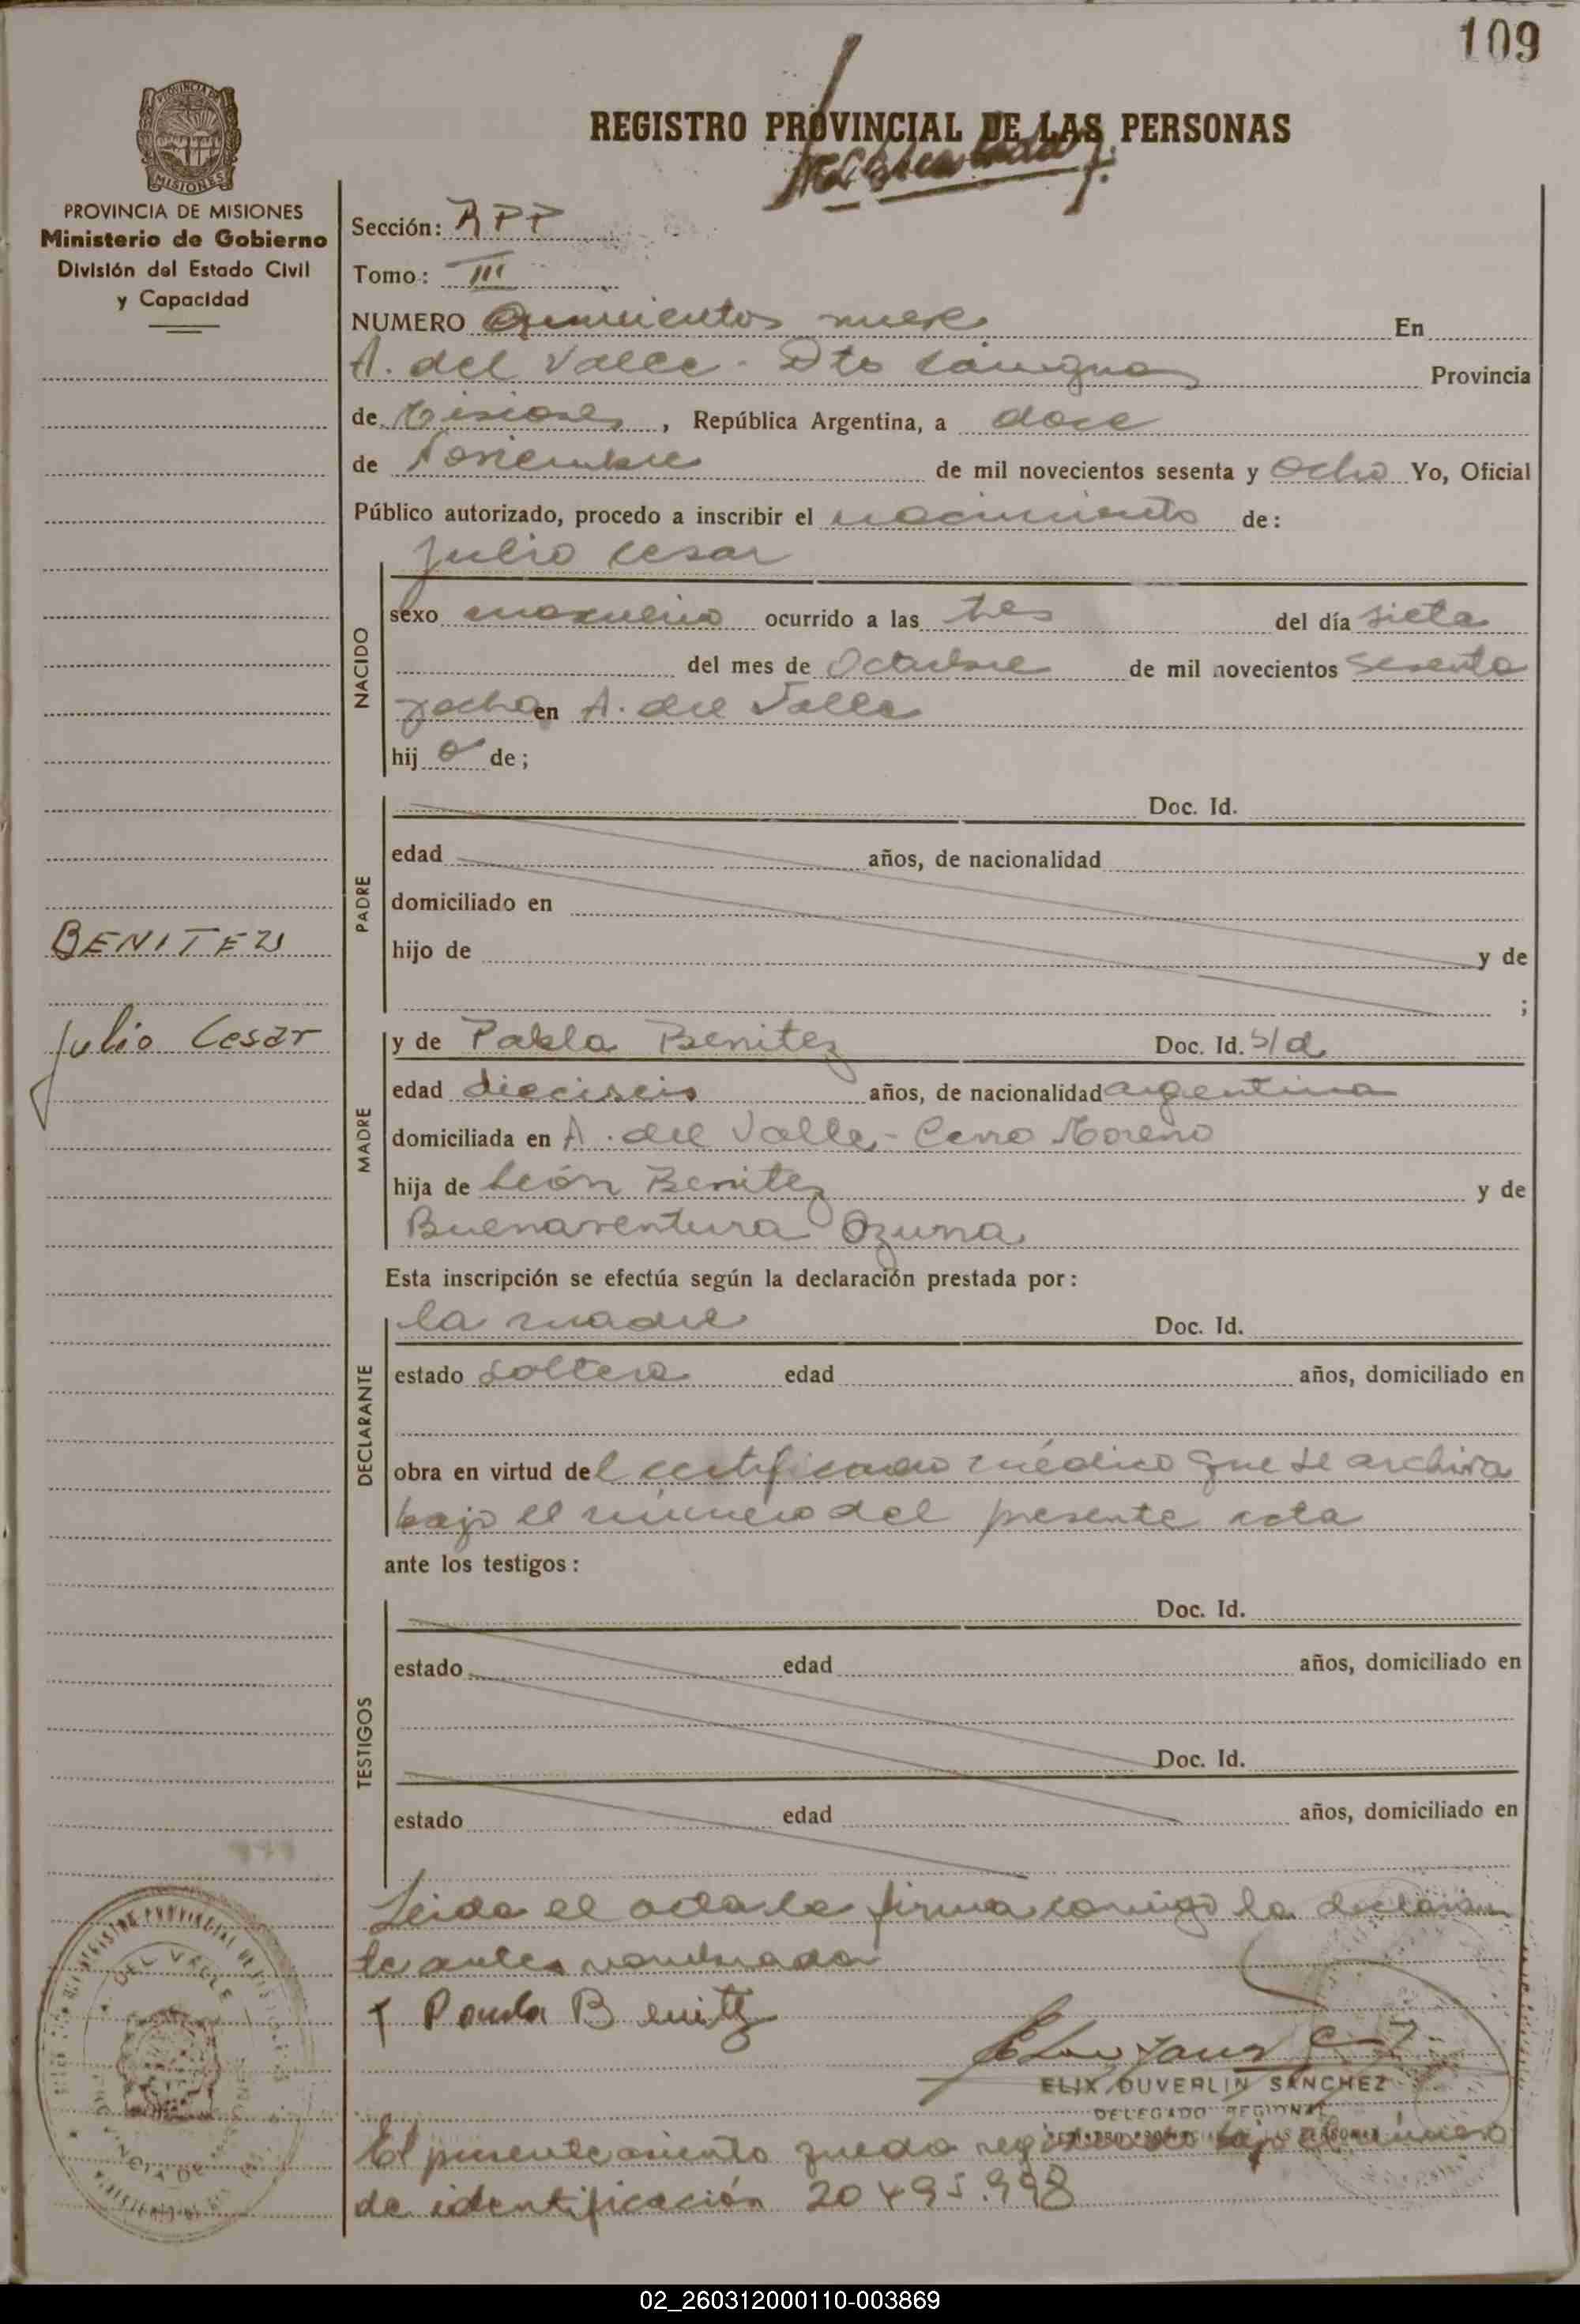 109
REGISTRO PROVINCIAL DE LAS PERSONAS
PROVINCIA DE MISIONES
Ministerio de Gobierno
División del Estado Civil
y Capacidad
Sección: RPP
Tomo: III
NUMERO Quinientos nueve En
A. del Valle - Dto Cainguas Provincia
de Misiones, República Argentina, a doce
de Noviembre de mil novecientos sesenta y Ocho Yo, Oficial
Público autorizado, procedo a inscribir el nacimiento de:
Julio Cesar
NACIDO
sexo masculino ocurrido a las tres del día siete
del mes de Octubre de mil novecientos sesenta
y ocho en A. del Valle
hij o de;
PADRE
Doc. Id.
edad años, de nacionalidad
domiciliado en
hijo de y de
;
BENITEZ
Julio Cesar
MADRE
y de Pabla Benitez Doc. Id. S/d
edad dieciseis años, de nacionalidad argentina
domiciliada en A. del Valle - Cerro Moreno
hija de León Benitez y de
Buenaventura Ozuna
Esta inscripción se efectúa según la declaración prestada por:
DECLARANTE
la madre Doc. Id.
estado soltera edad años, domiciliado en
obra en virtud del certificado médico que se archiva
bajo el número del presente acta
ante los testigos:
TESTIGOS
Doc. Id.
estado edad años, domiciliado en
Doc. Id.
estado edad años, domiciliado en
Leida el acta la firma conmigo la declaran
te antes nombrada
ELIX DUVERLIN SANCHEZ
DELEGADO REGIONAL
El presente asiento queda registrado bajo el número
de identificación 20495.998
02_260312000110-003869